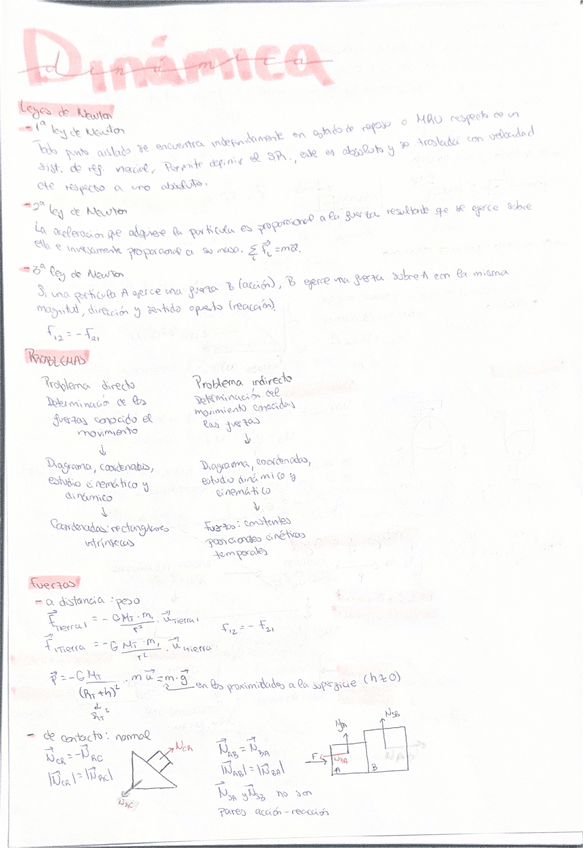 Dinámica
Leyes de Newton
- 1ª ley de Newton
Todo punto aislado se encuentra independientemente en estado de reposo o MRU respecto de un
sist. de ref. inercial. Permite definir el SRI, este es absoluto y se traslada con velocidad
cte respecto a uno absoluto.
- 2ª ley de Newton
La aceleración que adquiere la partícula es proporcional a la fuerza resultante que se ejerce sobre
ella e inversamente proporcional a su masa. Σ F⃗ᵢ = ma⃗.
- 3ª ley de Newton
Si una partícula A ejerce una fuerza B (acción), B ejerce una fuerza sobre A con la misma
magnitud, dirección y sentido opuesto (reacción)
f₁₂ = - f₂₁
PROBLEMAS
Problema directo
Determinación de las
fuerzas conocido el
movimiento
↓
Diagrama, coordenadas,
estudio cinemático y
dinámico
↓
Coordenadas: rectangulares
intrínsecas
Problema indirecto
Determinación del
movimiento conocidas
las fuerzas
↓
Diagrama, coordenadas,
estudio dinámico y
cinemático
↓
Fuerzas: constantes
posicionales cinéticas
temporales
Fuerzas
- a distancia: peso
f⃗tierra1 = - G MT · m₁ / r² · u⃗tierra1
f₁₂ = - f₂₁
f⃗1tierra = - G MT · m₁ / r² · u⃗1tierra
P⃗ = - G MT / (RT + h)² · m u⃗ = m · g⃗ en las proximidades a la superficie (h≈0)
RT²
- de contacto: normal
N⃗CR = - N⃗RC
|N⃗CR| = |N⃗RC|
NCR
NRC
N⃗AB = N⃗BA
|N⃗AB| = |N⃗BA|
N⃗SA y N⃗SB no son
pares acción-reacción
NSA
NSB
F
NBA
NAB
A
B